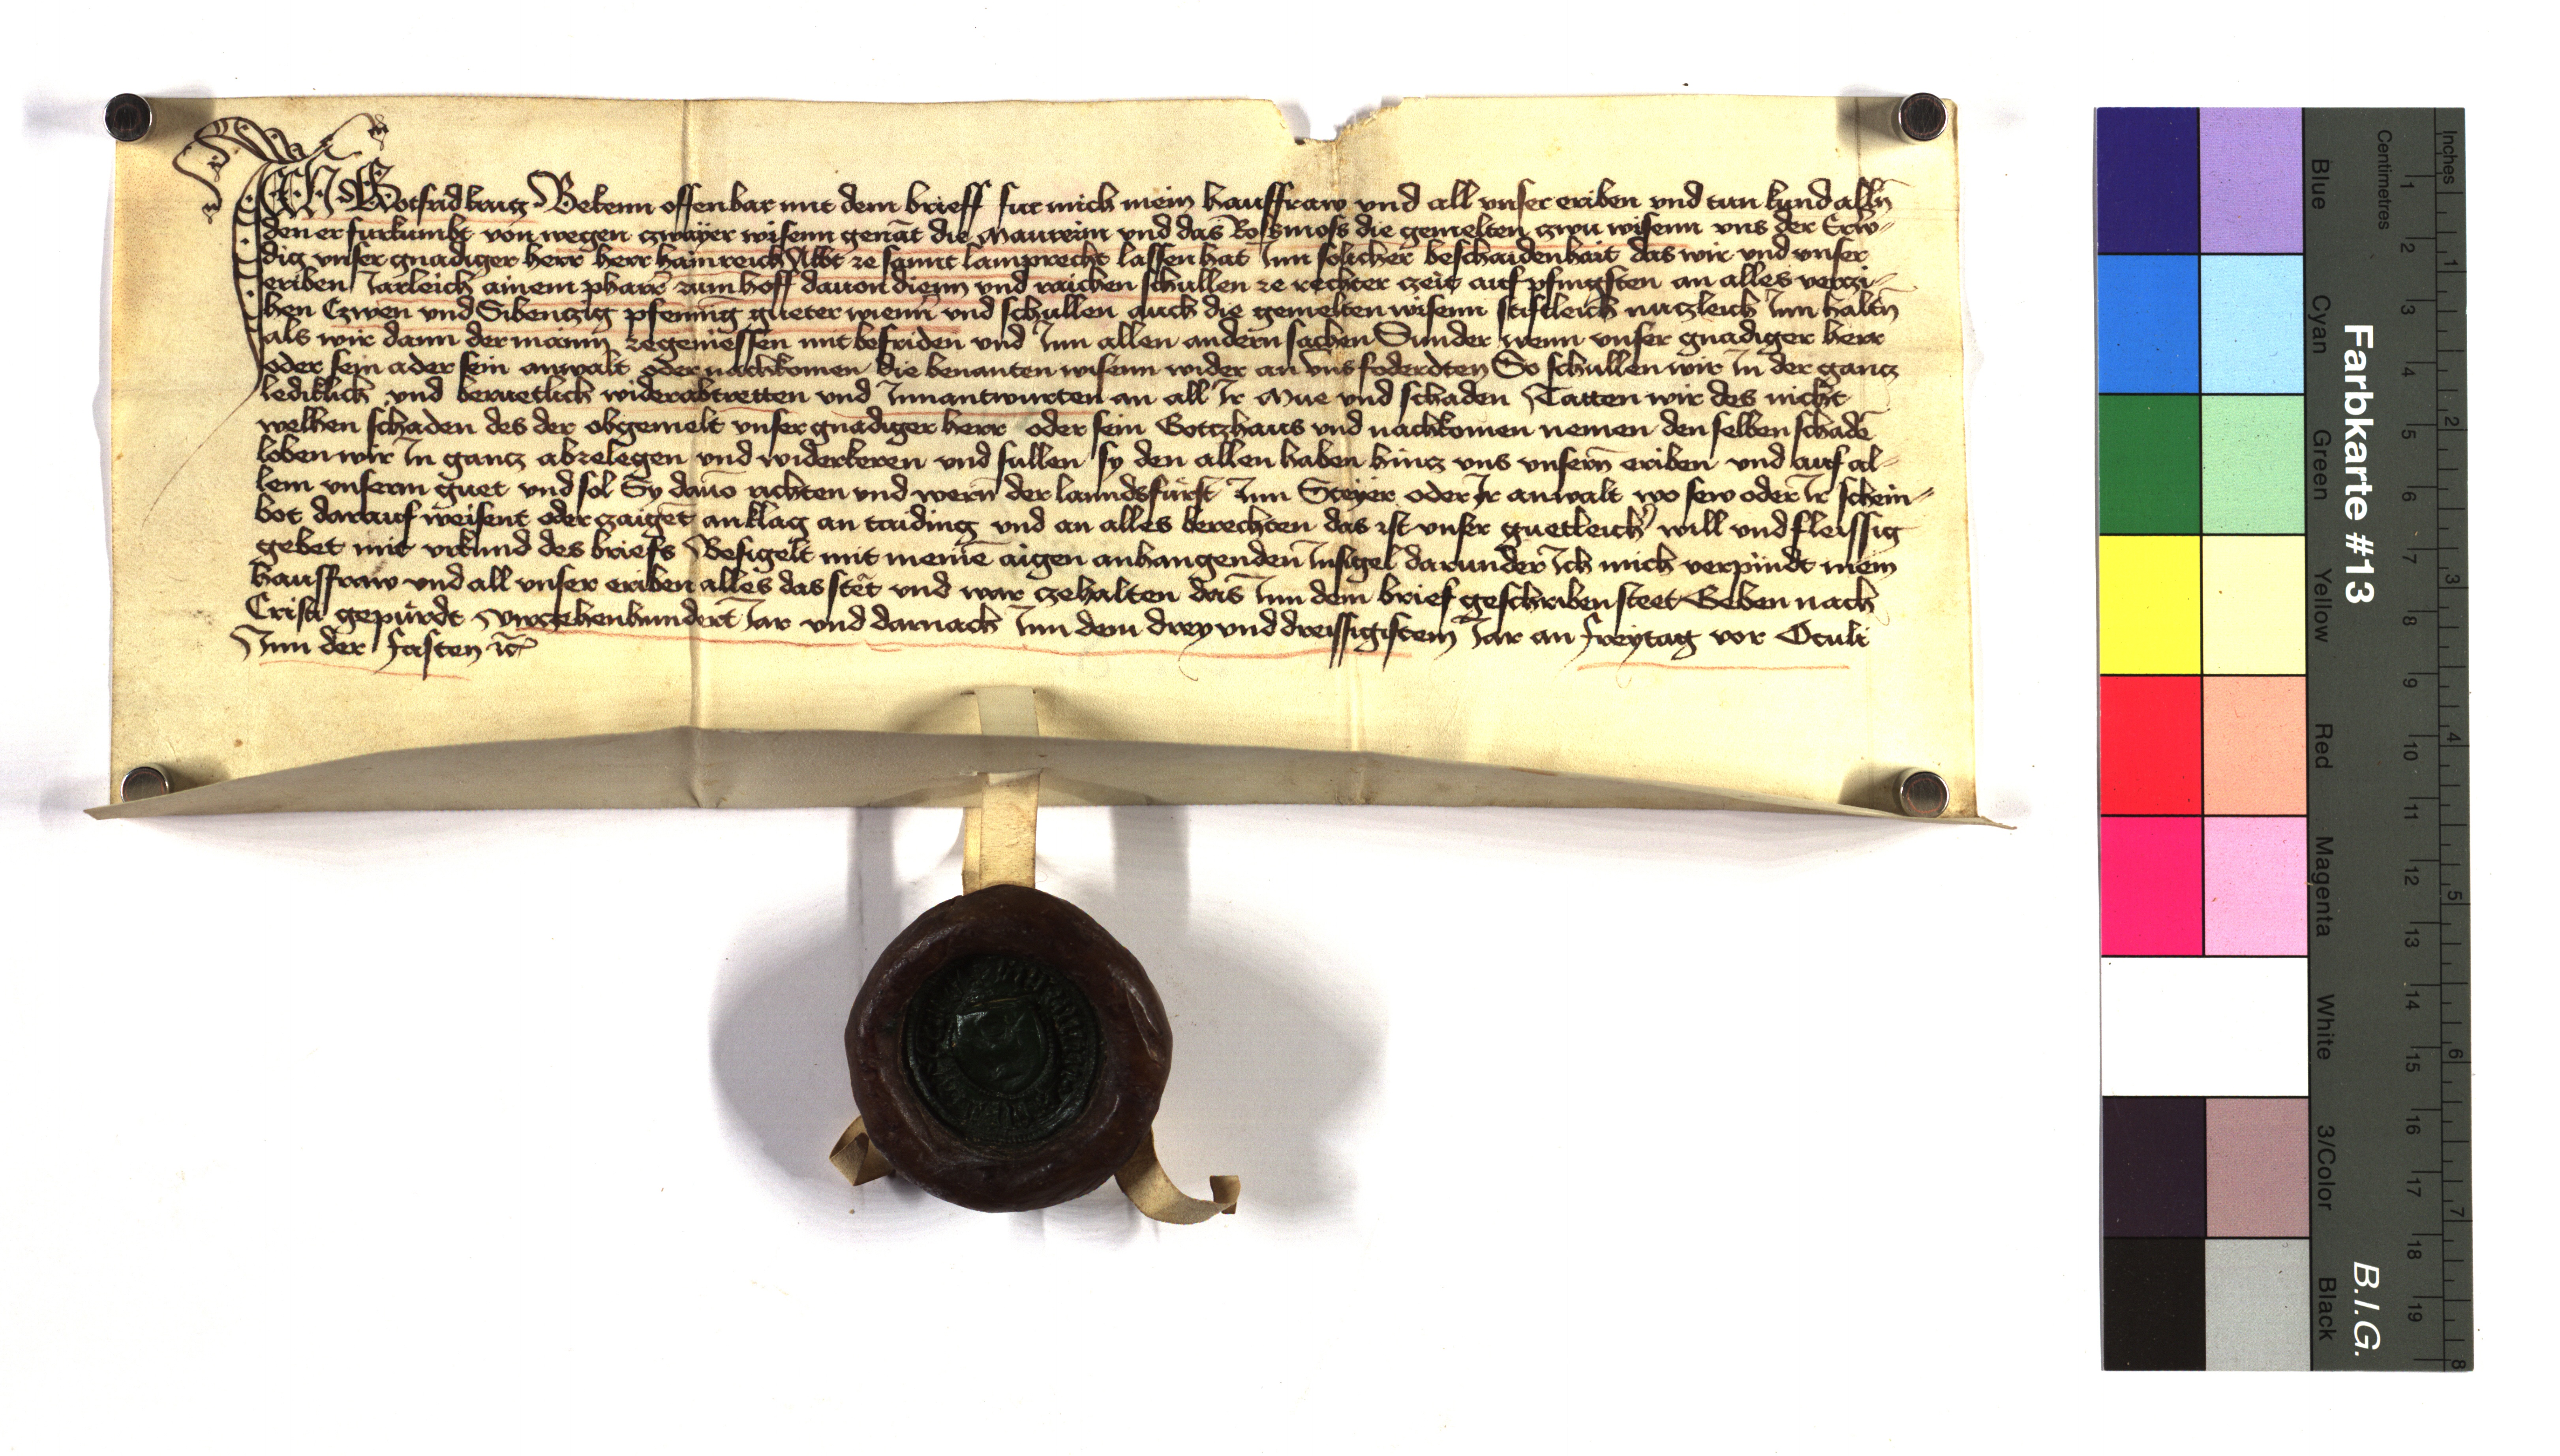 Ich Gotfrid Bekenn offenbar mit dem brieff fur mich mein hausffraw vnd all vnser eriben vnd tun kund alln̄
den er furkumbt von wegen zwayer wisenn genāt die Maurerin vnd das Rossmoss die gemelten zwu wisenn vns der Erw-
dig vnser gnadiger herr herr hainreich Abbt ze sannt lamprecht lassen hat Inn solicher beschaidenhait das wir vnd vnser
eriben Jarleich ainem pharr̄ zum hoff dauon dienn vnd raichen schullen ze rechter zeit auf pfingsten an alles verczi-
hen Czwen vnd Sibenczig pfenni̅g gueter wienn̄ vnd schullen auch die gemelten wisenn stiftleich nuczleich Inn haltn̄
als wir dann der mainn zegeniessen mit befriden vnd Inn allen andern sachen Sunder wenn vnser gnadiger herr
oder sein ader sein anwalt oder nachkomen die benanten wisenn wider an vns foderdten So schullen wir In der gancz
lediklich vnd beruetlich widerabtretten vnd Innantwurten an all Ir Mue vnd schaden Tatten wir des nicht
welhen schaden des der obgemelt vnser gnadiger herr oder sein Gotczhaus vnd nachkomen nemen den selben schadē
loben wir In gancz abzelegen vnd widerkeren vnd sullen sy den allen haben hincz vns vnsern̄ eriben vnd auf al-
lem vnserm guet vnd sol Sy dauō richten vnd wern̄ der lanndsfürst Inn Steyer oder Ir anwalt wo sew oder Ir schein-
bot darauf weisent oder zaigēt an klag an taiding vnd an alles berechten das ist vnser guetleich will vnd fleissig
gebet mit vrkund des briefs Besigelt mit meinē aigen anhangenden Insigel darunder Ich mich verpindt mein
hausffraw vnd all vnser eriben alles das stet vnd war zehalten das Inn dem brief geschriben steet Geben nach
Cristi gepürdt virczehenhundert Jar vnd darnach Inn dem drey vnd dreissigistem Jar an freytag vor Oculi
Inn der fasten
Farbkarte #13
B.I.G.
Inches
Centimetres
1 2 3 4 5 6 7 8
1 2 3 4 5 6 7 8 9 10 11 12 13 14 15 16 17 18 19
Blue
Cyan
Green
Yellow
Red
Magenta
White
3/Color
Black